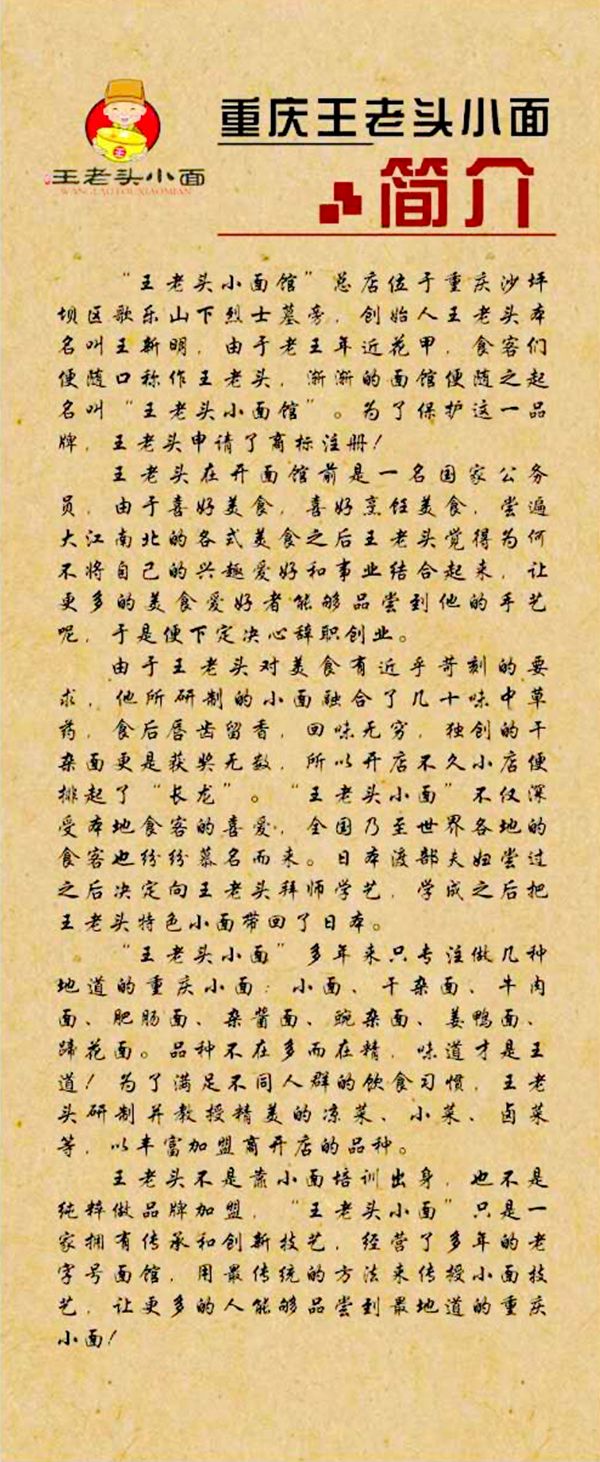 重庆王老头小面
王老头小面
WANGLAOTOUXIAOMIAN
简介
“王老头小面馆”总店位于重庆沙坪
坝区歌乐山下烈士墓旁，创始人王老头本
名叫王新明，由于老王年近花甲，食客们
便随口称作王老头，渐渐的面馆便随之起
名叫“王老头小面馆”。为了保护这一品
牌，王老头申请了商标注册！
王老头在开面馆前是一名国家公务
员，由于喜好美食，喜好烹饪美食，尝遍
大江南北的各式美食之后王老头觉得为何
不将自己的兴趣爱好和事业结合起来，让
更多的美食爱好者能够品尝到他的手艺
呢，于是便下定决心辞职创业。
由于王老头对美食有近乎苛刻的要
求，他所研制的小面融合了几十味中草
药，食后唇齿留香，回味无穷，独创的干
杂面更是获奖无数，所以开店不久小店便
排起了“长龙”。“王老头小面”不仅深
受本地食客的喜爱，全国乃至世界各地的
食客也纷纷慕名而来。日本渡部夫妇尝过
之后决定向王老头拜师学艺，学成之后把
王老头特色小面带回了日本。
“王老头小面”多年来只专注做几种
地道的重庆小面：小面、干杂面、牛肉
面、肥肠面、杂酱面、豌杂面、姜鸭面、
蹄花面。品种不在多而在精，味道才是王
道！为了满足不同人群的饮食习惯，王老
头研制并教授精美的凉菜、小菜、卤菜
等，以丰富加盟商开店的品种。
王老头不是靠小面培训出身，也不是
纯粹做品牌加盟，“王老头小面”只是一
家拥有传承和创新技艺，经营了多年的老
字号面馆，用最传统的方法来传授小面技
艺，让更多的人能够品尝到最地道的重庆
小面！